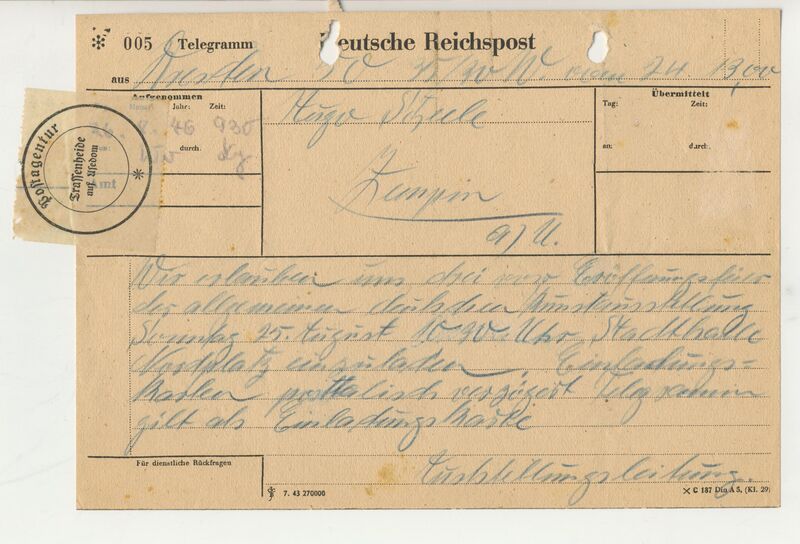 005 Telegramm Deutsche Reichspost
aus Dresden 50 W. vom 24. 13,00
Aufgenommen
Jahr: Zeit:
26. 8. 46 930
durch:
Amt
Postagentur
Trassenheide
auf Usedom
Hugo Scheele
Zempin
a/U.
Übermittelt
Tag: Zeit:
an: durch:
Wir erlauben uns zur Eröffnungsfeier
der allgemeinen deutschen Kunstausstellung
Sonntag 25. August 10.30 Uhr Stadthalle
Nordplatz einzuladen. Einladungs-
karten posttalisch verzögert Telegramm
gilt als Einladungskarte
Ausstellungsleitung.
Für dienstliche Rückfragen
7. 43 270000
C 187 Din A 5, (Kl. 29)